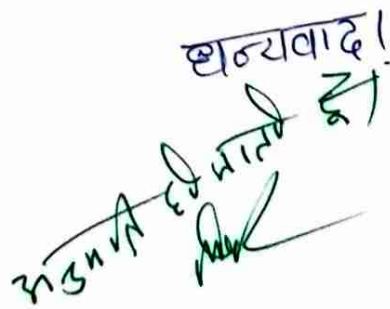 धन्यवाद!
अनुमति दी जाती है।